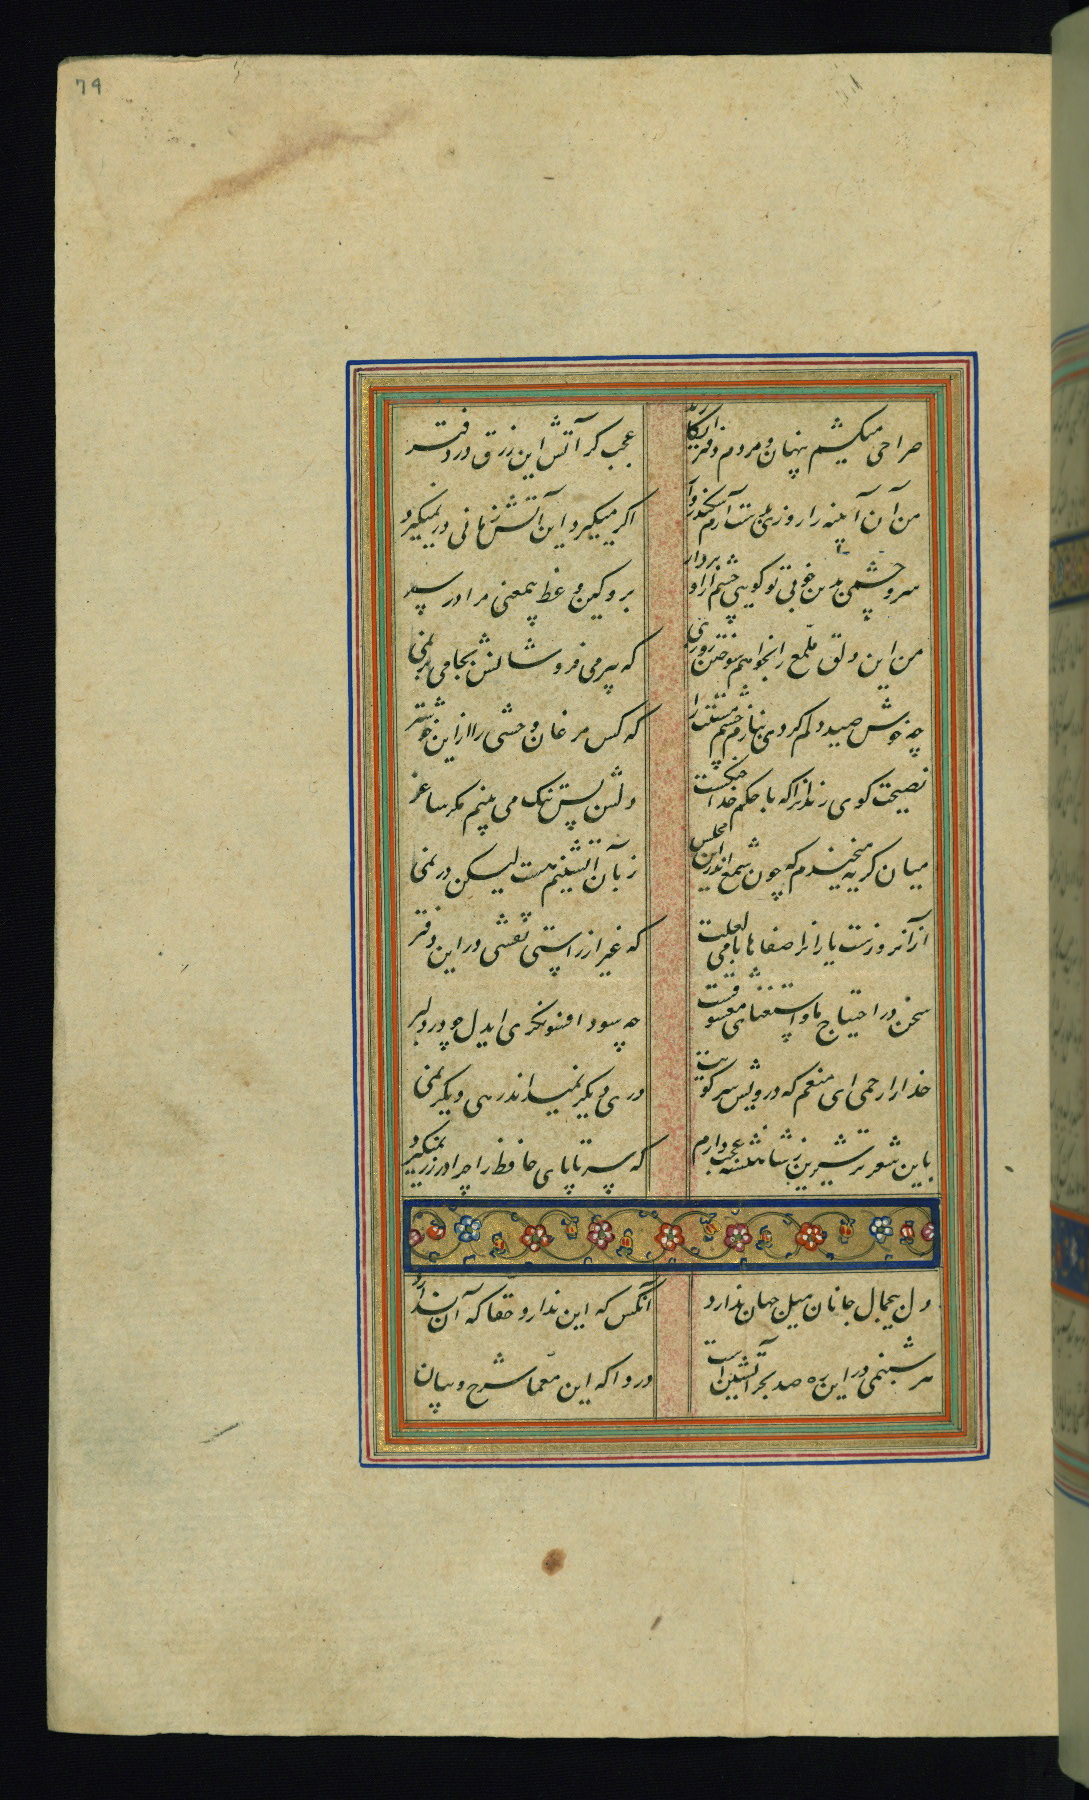 79
صراحی میکشیم پنهان و مردم دفتر انگارند
عجب گر آتش این زرق در دفتر
من آن آیینه را روزی بدست آرم سکندروار
اگر میگیرد این آتش زمانی ور نمیگیرد
سر و چشمی بدین خوبی تو گویی چشم ازو بردار
برو کین وعظ بیمعنی مرا در سر
من این دلق ملمع را بخواهم سوختن روزی
که پیر می فروشانش بجامی بر نمی
چه خوش صید دلم کردی بنازم چشم مستت را
که کس مرغان وحشی را ازین خوشتر
نصیحت گوی رندانرا که با حکم خدا جنگست
دلش بس تنگ می بینم مگر ساغر
میان گریه میخندم که چون شمع اندرین مجلس
زبان آتشینم هست لیکن در نمی
از آنروزست یارانرا صفاها با می لعلت
که غیر از راستی نقشی در این دفتر
سخن در احتیاج ما و استغنای معشوقست
چه سود افسونگری ایدل چو در دلبر
خدا را رحمی ای منعم که درویش سر کویت
دری دیگر نمیداند رهی دیگر نمی
باین شعر تر شیرین ز شاهنشه عجب دارم
که سر تا پای حافظ را چرا در زر نمیگیرد
دل بیجمال جانان میل جهان ندارد
آنکس که این ندارد حقا که آن ندارد
هر شبنمی در این ره صد بحر آتشین است
دردا که این معما شرح و بیان